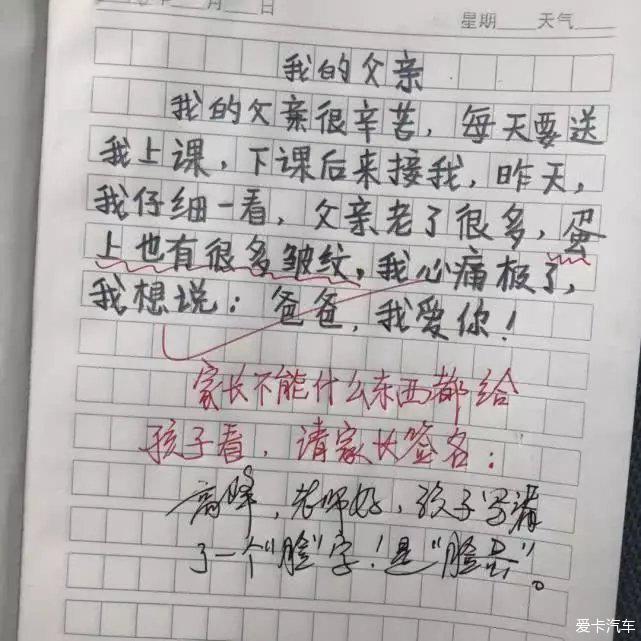 月 日 星期 天气
我的父亲
我的父亲很辛苦，每天要送
我上课，下课后来接我，昨天，
我仔细一看，父亲老了很多，蛋
上也有很多皱纹，我心痛极了，
我想说：爸爸，我爱你！
家长不能什么东西都给
孩子看，请家长签名：
高峰，老师好，孩子写漏
了一个“脸”字！是“脸蛋”。
爱卡汽车